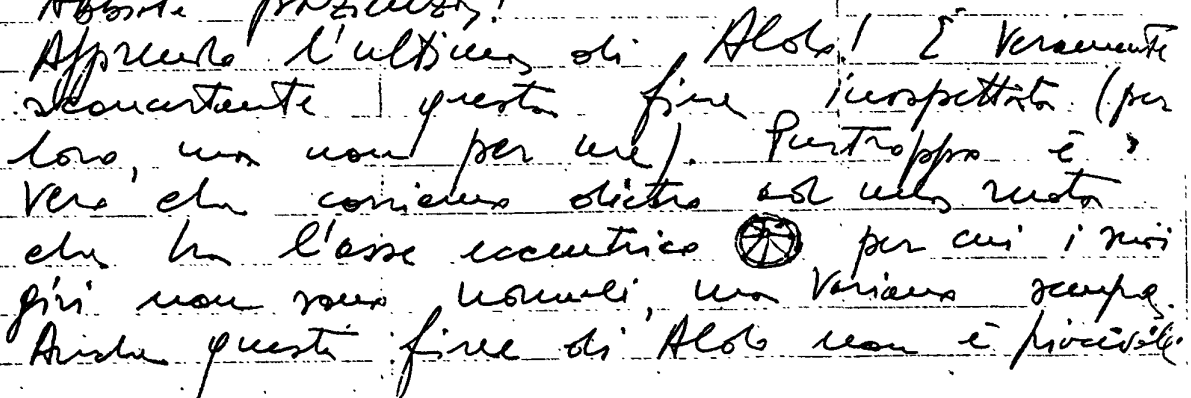 Abbiate pazienza!
Apprendo l'ultima di Aldo! È veramente
sconcertante questa fine inaspettata (per
loro, ma non per me). Purtroppo è
vero che corriamo dietro ad una ruota
che ha l'asse eccentrico per cui i suoi
giri non sono normali, ma variano sempre.
Anche questa fine di Aldo non è piacevole.